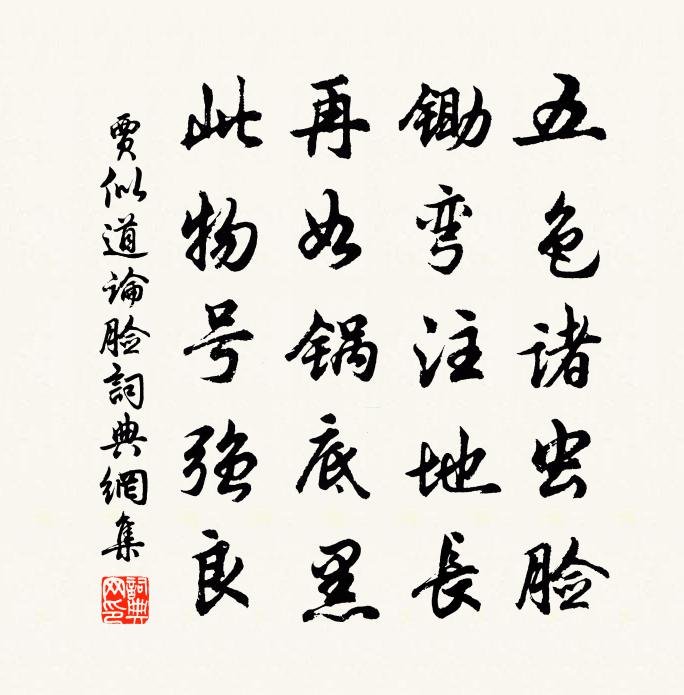 五色诸虫脸
锄弯注地長
再如锅底黑
此物号强良
賈似道論脸詞典網集
詞典网印